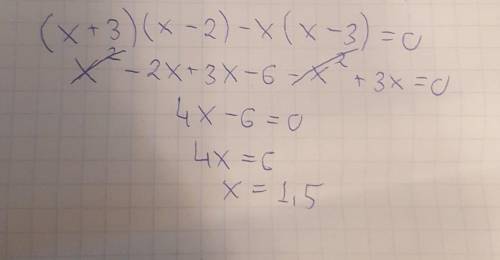 (x+3)(x-2)-x(x-3)=0
x² -2x+3x-6-x² +3x=0
4x-6=0
4x=6
x=1,5